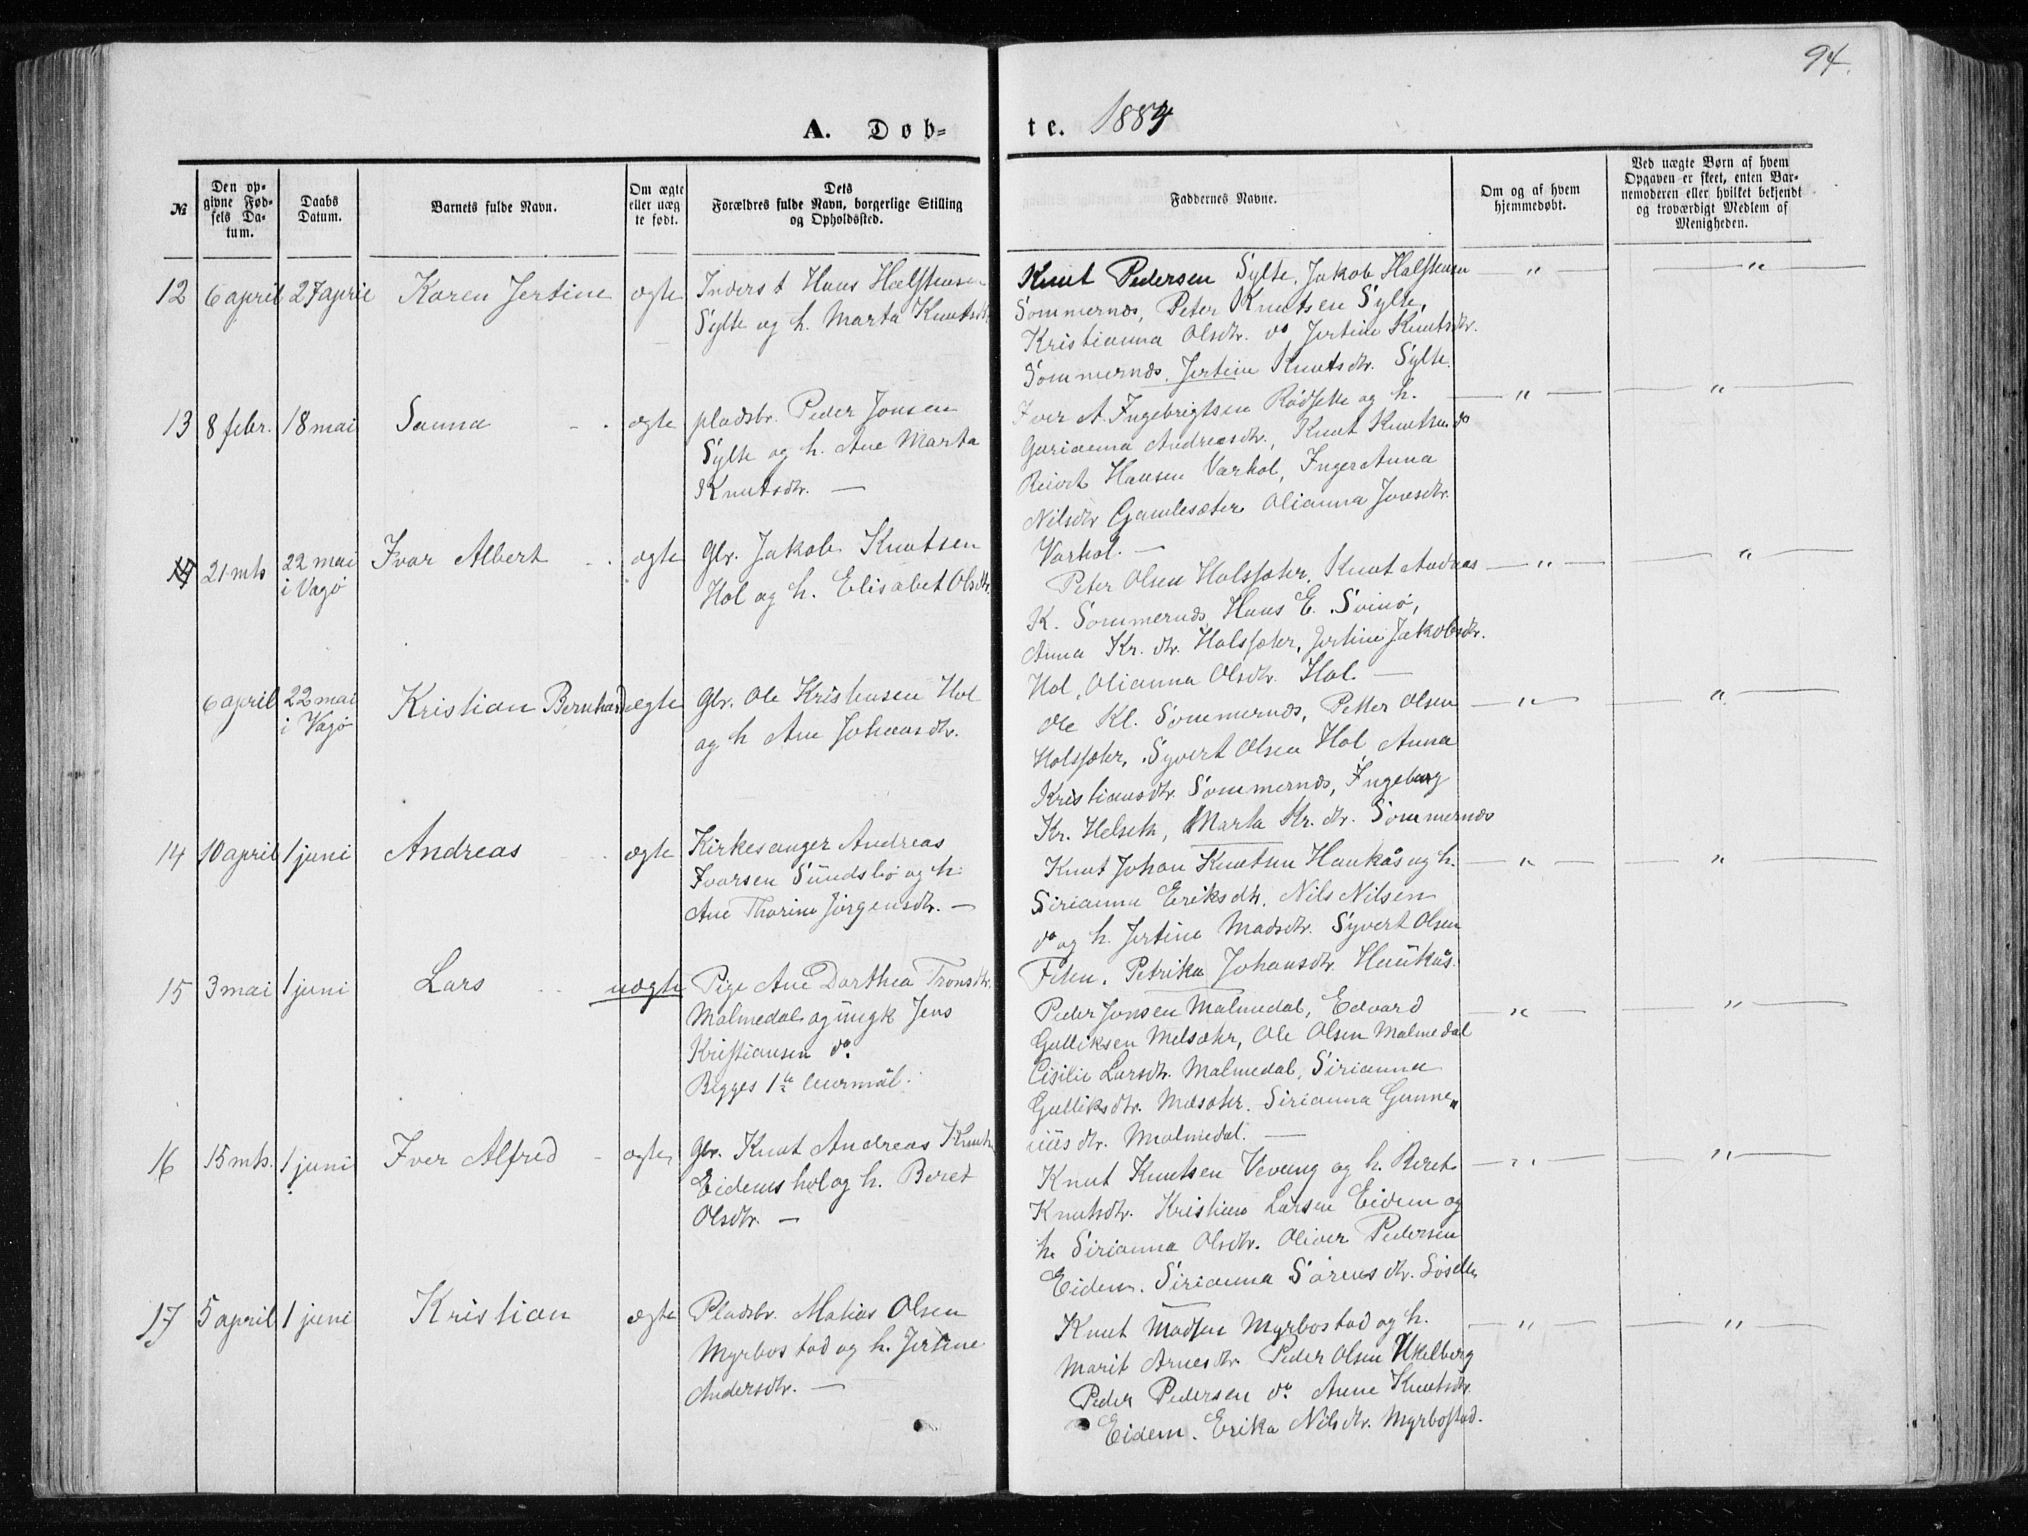 94.
A. Døb-
te. 1884
№
Den op-
givne Fød-
sels Da-
tum.
Daabs
Datum.
Barnets fulde Navn.
Om ægte
eller uæg
te født.
Dets
Forældres fulde Navn, borgerlige Stilling
og Opholdssted.
Faddernes Navne.
Om og af hvem
hjemmedøbt.
Ved uægte Børn af hvem
Opgaven er skeet, enten Bar-
nemoderen eller hvilket bekjendt
og troværdigt Medlem af
Menigheden.
12 6 april 27 april Karen Jertine ægte
Inderst Hans Halstensen
Sylte og h. Marta Knutsdtr.
Knut Pedersen Sylte, Jakob Halstensen
Sommernæs, Peter Knutsen Sylte,
Kristianna Olsdtr. do Jertine Knutsdtr.
Sommernæs, Jertine Knutsdtr. Sylte.
13 8 febr. 18 mai Sanna ægte
pladsbr. Peder Jonsen
Sylte og h. Ane Marta
Knutsdtr. —
Iver A. Ingebrigtsen Rødsete og h.
Gurianna Andreasdtr., Knut Knutsen do
Hansen Varhol, Inger Anna
Nilsdtr Gamlesæter Olianna Jonsdtr.
Varhol. —
21 mts 22 mai
i Vagø
Ivar Albert ægte
Gbr. Jakob Knutsen
Hol og h. Elisabet Olsdtr.
Peter Olsen Holssæter, Knut Andreas
K. Sommernæs, Hans E. Svinø,
Anna Kr. dtr. Holssæter, Jertine Jakobsdtr.
Hol, Olianna Olsdtr. Hol. —
6 april 22 mai
i Vagø
Kristian Bernhard ægte
Gbr. Ole Kristensen Hol
og h Ane Johansdtr.
Ole Kl. Sommernæs, Petter Olsen
Holssæter, Syvert Olsen Hol Anna
Kristiansdtr. Sommernæs, Ingeborg
Kr. Helseth, Marta Kr. dtr. Sommernæs
14 10 april 1 juni Andreas ægte
Kirkesanger Andreas
Ivarsen Sundsbø og h.
Ane Thorine Jørgensdtr. —
Knut Johan Knutsen Haukås og h.
Sirianna Eriksdtr. Nils Nilsen
do og h. Jertine Madsdtr. Syvert Olsen
Petrika Johansdtr. Haukås.
15 3 mai 1 juni Lars uægte
Pige Ane Dorthea Tronsdtr.
Malmedal og ungk Jens
Kristiansen do
Begges 1ste leiermål.
Peder Jonsen Malmedal, Edvard
Gulliksen Melsæter, Ole Olsen Malmedal
Cisilie Larsdtr. Malmedal, Sirianna
Gulliksdtr. Sirianna Gunne"
riusdtr. Malmedal. —
16 15 mts. 1 juni Iver Alfred ægte
Gbr. Knut Andreas Knuts.
Eidemshol og h. Beret
Olsdtr. —
Knut Knutsen Vevang og h. Beret
Knutsdtr. Kristian Larsen Eidem og
h. Sirianna Olsdtr. Oliver Pedersen
Eidem. Sirianna Sørensdtr.
17 5 april 1 juni Kristian ægte
Pladsbr. Matias Olsen
Myrbostad og h. Jertine
Andersdtr. —
Knut Madsen Myrbostad og h.
Marit Arnesdtr. Peder Olsen Ukelberg
Peder Pedersen do. Anne Knutsdtr.
Eidem. Erika Nilsdtr. Myrbostad.